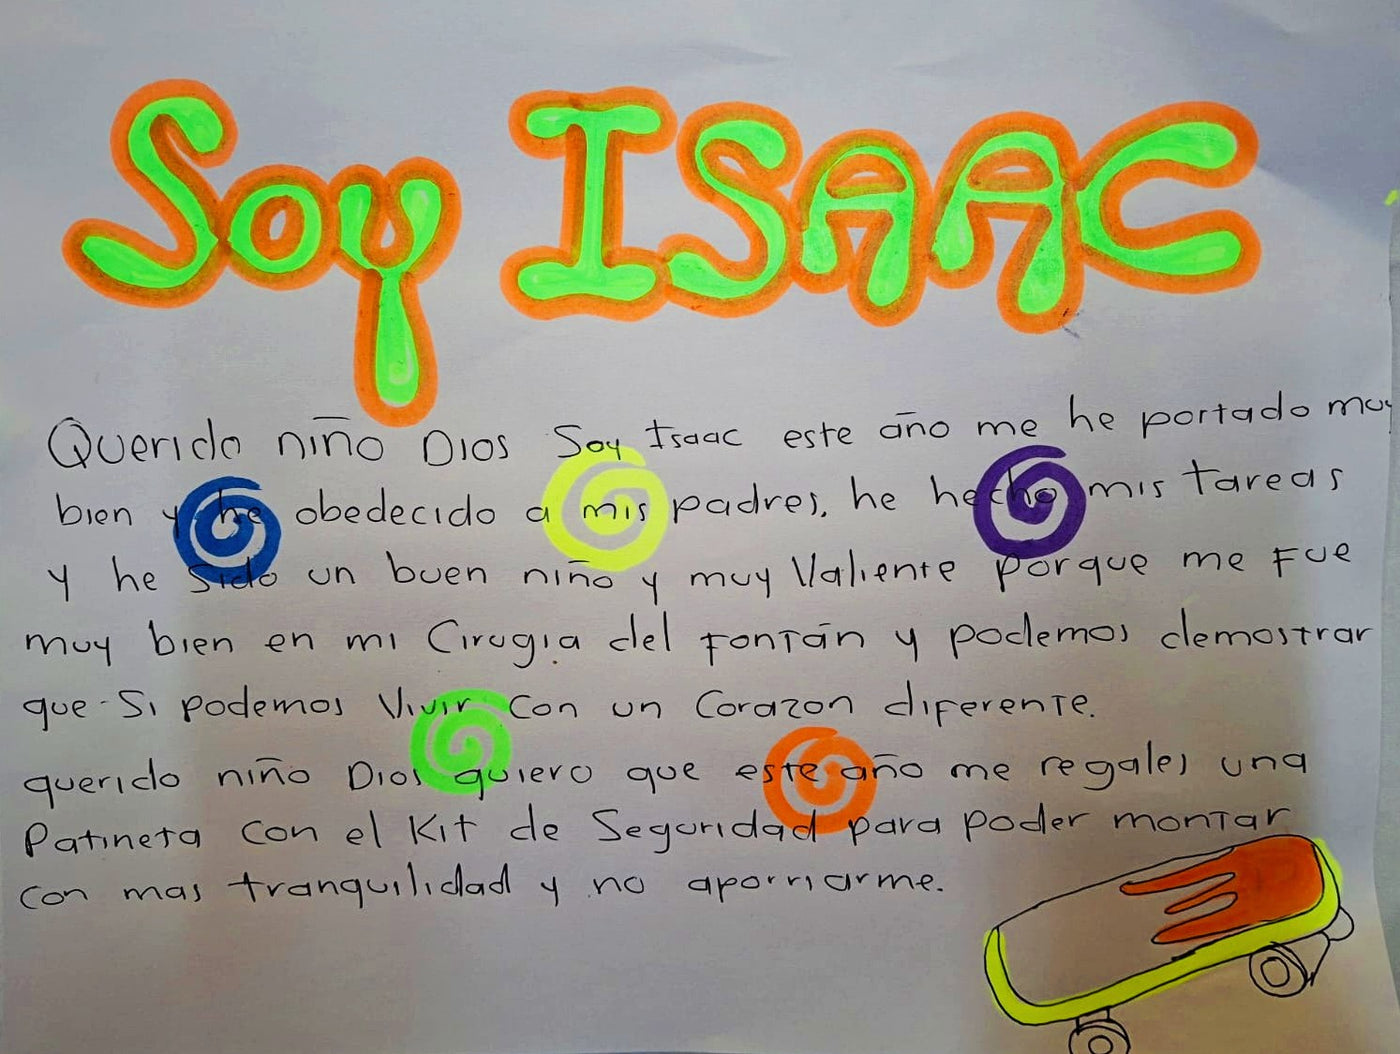 Soy ISAAC
Querido niño Dios Soy Isaac este año me he portado muy
bien y he obedecido a mis padres, he hecho mis tareas
y he sido un buen niño y muy Valiente porque me fue
muy bien en mi Cirugia del Fontán y podemos demostrar
que Si podemos Vivir Con un Corazon diferente.
querido niño Dios quiero que este año me regales una
Patineta Con el Kit de Seguridad para poder montar
con mas tranquilidad y no aporriarme.